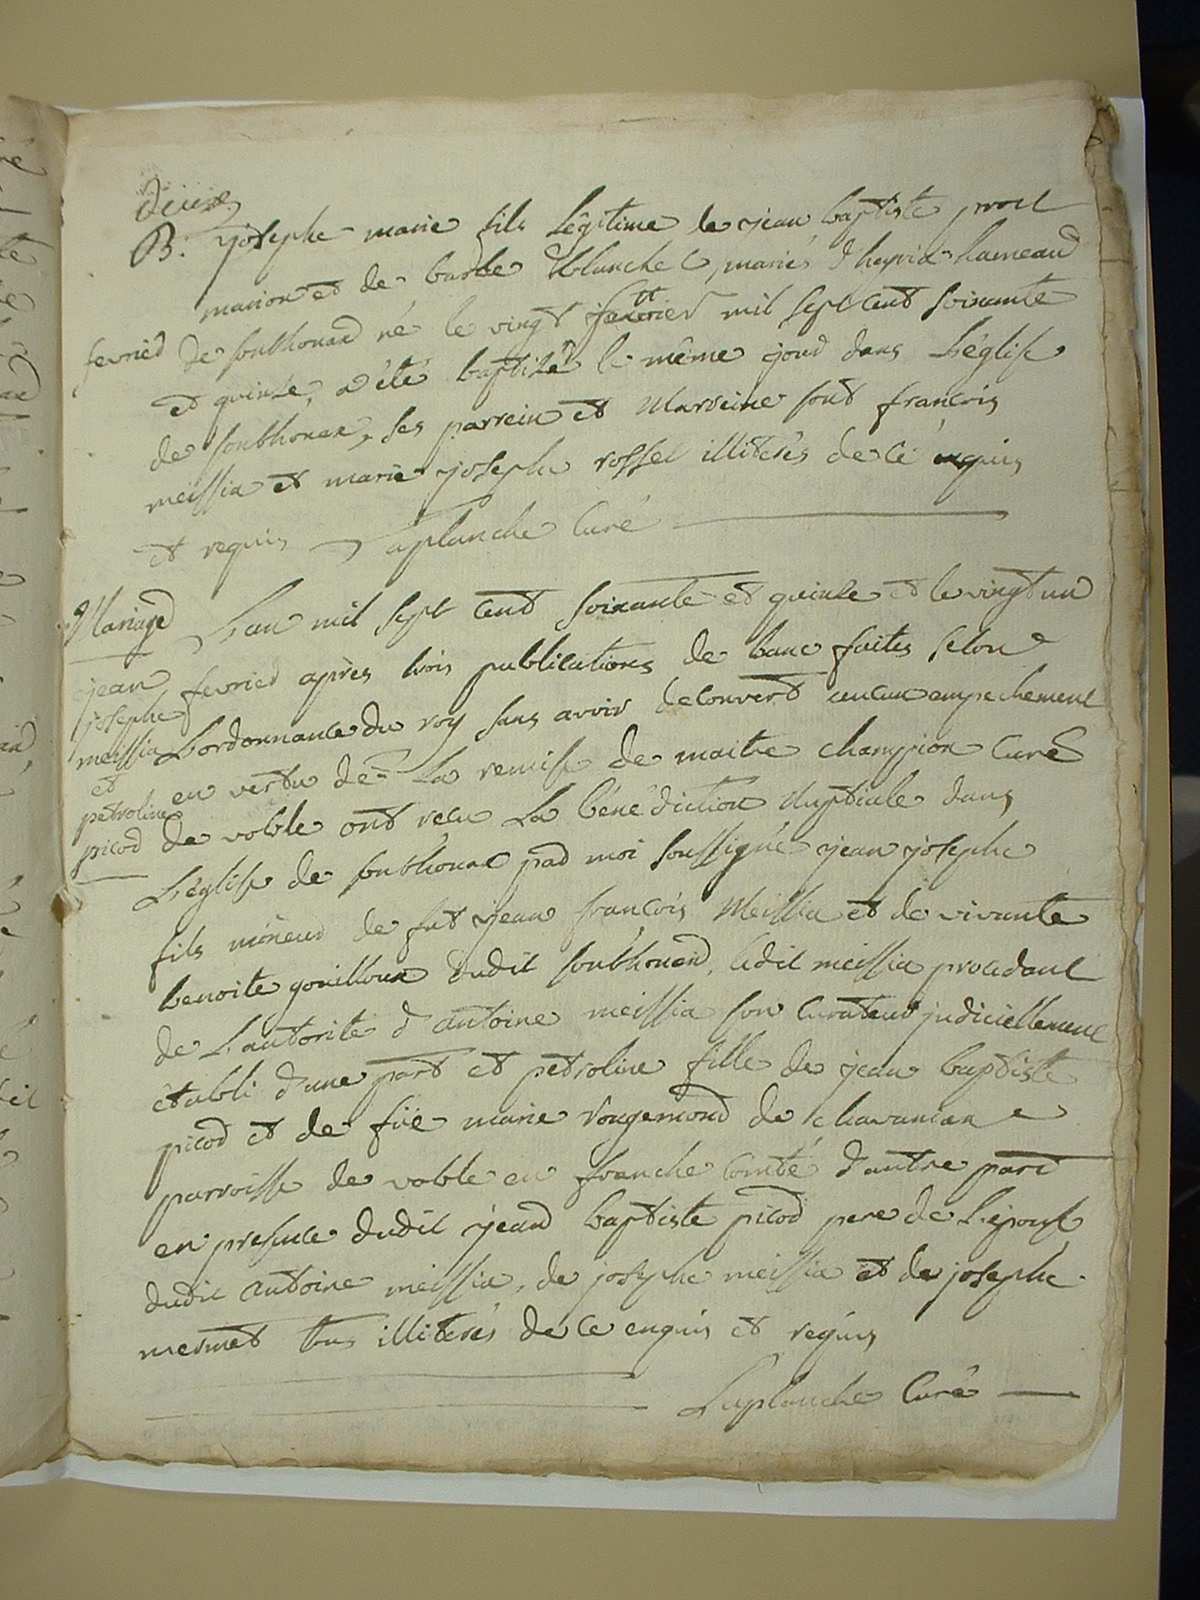 deuxe
B: josephe marie fils Légitime de jean baptiste prost
marion et de barbe Blanchet mariés d'heyria hameaud
fevried de soubhonax né le vingt fevrier mil sept cent soixante
et quinze, a été baptizé le même jour dans L'église
de soubhonax, ses parrein et Marreine sont francois
meissia et marie josephe rossel illiterés de ce enquis
et requis Laplanche Curé
Mariage L'an mil sept cent soixante et quinze et le vingt un
jean fevried après trois publications de banc faites selon
josephe
meissia L'ordonnance du roy sans avoir decouvert aucun empechement
et en vertu de La remise de maitre champion Curé
petroline
picod de voble ont recu La bénédiction Nuptiale dans
L'église de soubhonax par moi soussigné jean josephe
fils mineur de fut jean francois Meissia et de vivante
benoite gouilloux dudit soubhonax, ledit meissia procedant
de L'autorité d'antoine meissia son Curateur judiciellement
établi d'une part et petroline fille de jean baptiste
picod et de füe marie rougemond de chavanian
parroisse de voble en franche Comté d'autre part
en presence dudit jean baptiste picod pere de L'epouse
dudit antoine meissia, de josephe meissia et de josephe
mermet tous illiterés de ce enquis et requis
Laplanche Curé